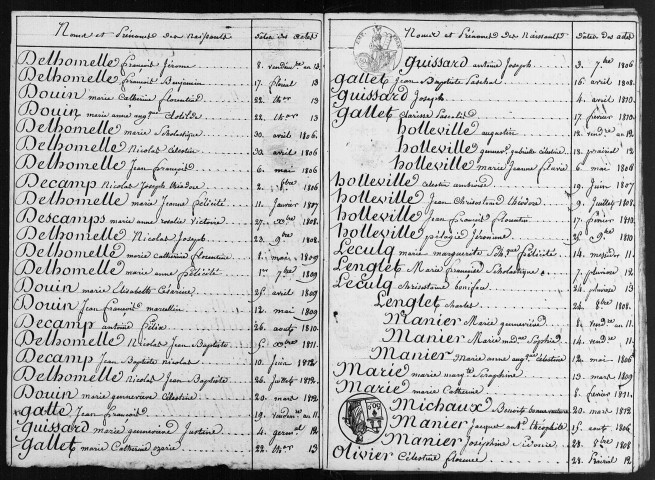 Noms et Prénoms des Naissants Dates des actes
Delhomelle françois Jérome 8. vendém.re an 13
Delhomelle françois Benjamin 17. floréal 13
Douin marie Catherine florentine 22. th.or 13
Douin marie anne aug.ne 22. th.or 13
Delhomelle marie Scholastique 30. avril 1806.
Delhomelle Nicolas Célestin 30. avril 1806
Delhomelle Jean françois 6. mai 1806
Decamp Nicolas Joseph 2. 8.bre 1806
Delhomelle marie Jeanne félicité 11. Janvier 1807
Descamps marie anne rosalie Victoire 27. x.bre 1808.
Delhomelle Nicolas Joseph 23. 9.bre 1808.
Delhomelle marie Catherine florentine 1. mai 1809
Delhomelle marie anne félicité 1.er 7.bre 1809
Douin marie Elisabeth Césarine 25. avril 1809
Douin Jean françois marcellin 12. mai 1809
Decamp antoine félix 26. août 1810.
Delhomelle Nicolas Jean Baptiste 5. x.bre 1811.
Decamp Jean Baptiste Nicolas 10. Juin 1812
Delhomelle Nicolas Jean Baptiste 26. Juillet 1812.
Douin marie geneviève Célestine 20. mars 1812
gallet Jean françois 19. vendém.re an 11.
Guissard marie geneviève Justine 4. germinal 12
Gallet marie Catherine 22. th.or 13
Noms et Prénoms des Naissants Dates des actes
Guissard antoine Joseph 3. 7.bre 1806
gallet Jean Baptiste Paschal 16. avril 1808.
Guissard Joseph 4. avril 1810.
Gallet Clarisse 17. février 1810
holleville augustin 12. vend.re an 12
holleville genev.e gabrielle Célestine 18. prairial 12
holleville marie Jeanne flavie 6. mai 1806
holleville Célestin ambroise 19. Juin 1807
holleville Jean 9. Juillet 1808.
holleville Jean françois florentin 17. février 1810
holleville pélagie Jéromine 25. 9.bre 1810
Leculq marie marguerite félicité 14. messidor 11
Lenglet Marie françoise Scholastique 7. pluviose 12
Leculq chrisostome boniface 24. pluviose 13
Lenglet charles 24. 8.bre 1808.
Manier Marie geneviève 8. vend.re an 11.
Manier Marie Sophie 14. vend.re 11.
Manier Marie anne aug.ne Célestine 12. mai 1806
Marie marie marg.te Séraphine 13. mars 1809
Marie marie Catherine 8. février 1811.
Michaux Benoit bonnaventure 20. mars 1812
Manier Jacques ant. théophile 15. août 1806
Manier Joséphine 28. 8.bre 1808
Olivier Célestine florence 28. Prairial 12